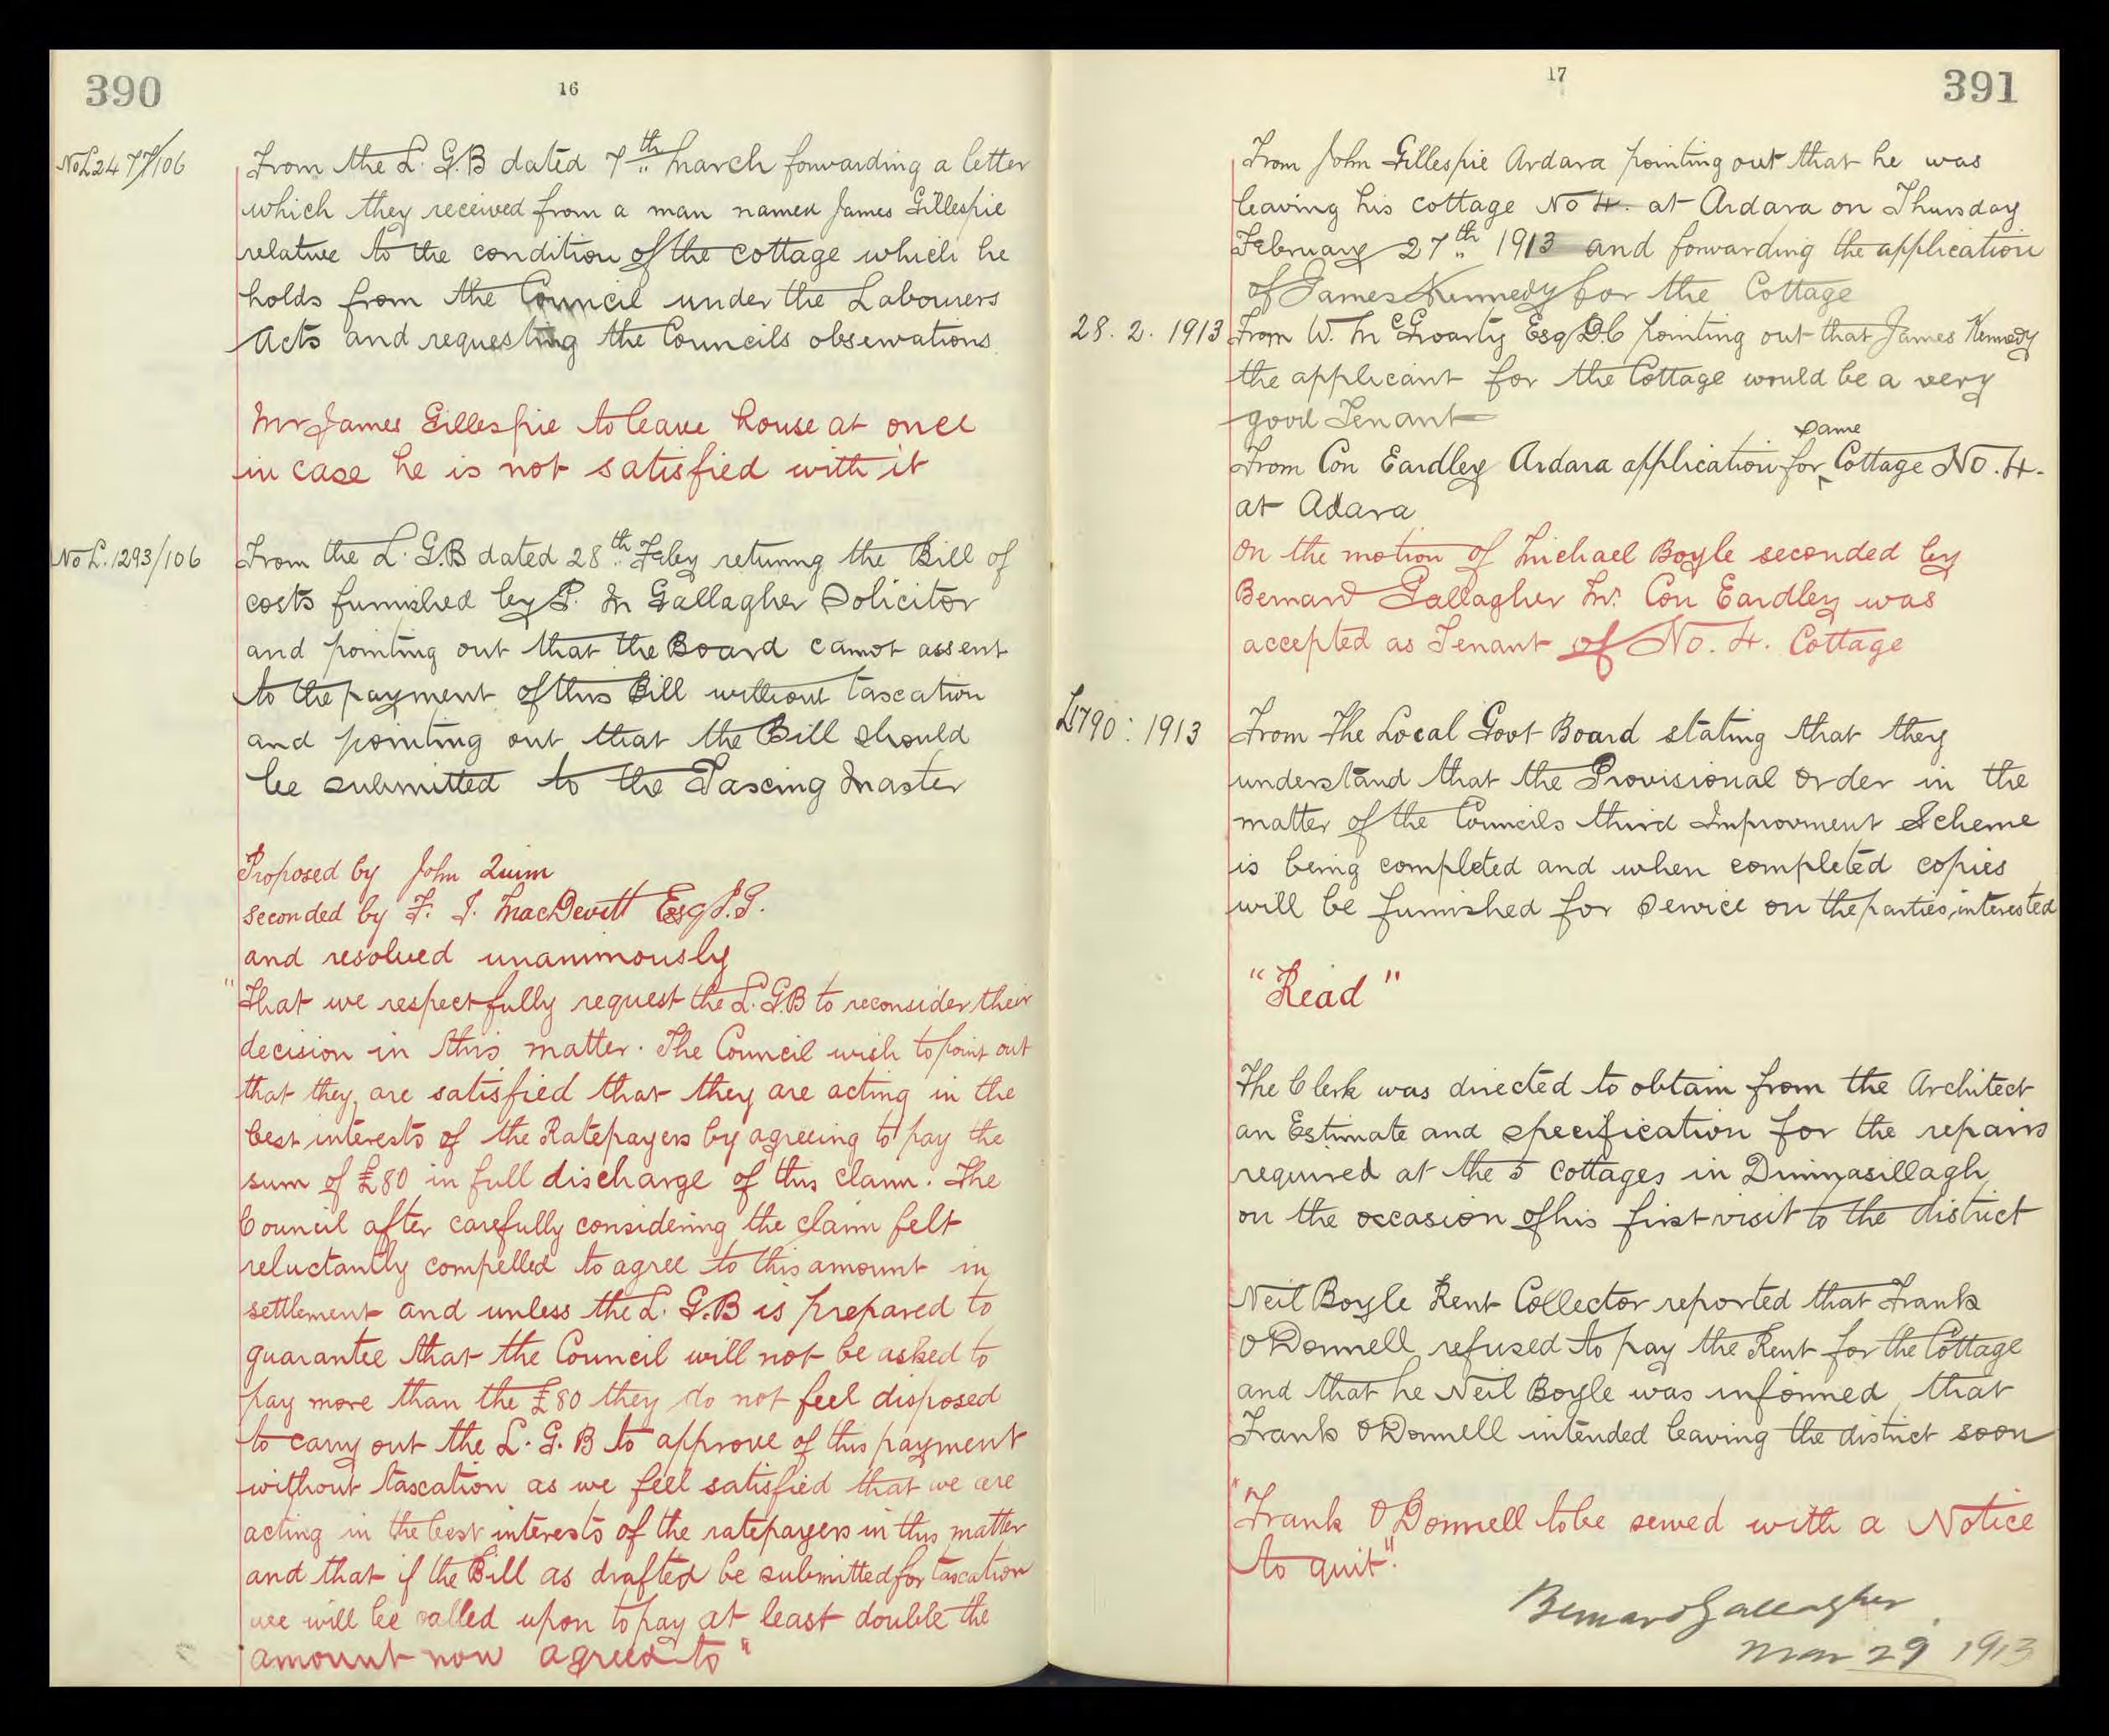 390
16
No L2477/106
From the L. G.B dated 7th March forwarding a letter
which they received from a man named James Gillespie
relative to the condition of the cottage which he
holds from the Council under the Labourers
Acts and requesting the Councils observations
Mr James Gillespie to leave house at once
in case he is not satisfied with it
No L. 1293/106
From the L. G.B dated 28th Feby returng the Bill of
costs furnished by P. M Gallagher Solicitor
and pointing out that the Board cannot assent
to the payment of this Bill without taxation
and pointing out that the Bill should
be submitted to the Taxing Master
Proposed by John Quinn
seconded by F. J. MacDevitt Esq J.P.
and resolved unanimously
"That we respectfully request the L. G.B to reconsider their
decision in this matter. The Council wish to point out
that they are satisfied that they are acting in the
best interests of the Ratepayers by agreeing to pay the
sum of £80 in full discharge of this claim. The
Council after carefully considering the claim felt
reluctantly compelled to agree to this amount in
settlement and unless the L. G.B is prepared to
guarantee that the Council will not be asked to
pay more than the £80 they do not feel disposed
to carry out the L. G. B to approve of this payment
without taxation as we feel satisfied that we are
acting in the best interests of the ratepayers in this matter
and that if the Bill as drafted be submitted for taxation
we will be called upon to pay at least double the
amount now agreed to"
17
391
From John Gillespie Ardara pointing out that he was
leaving his cottage No 4. at Ardara on Thursday
February 27th 1913 and forwarding the application
of James Kennedy for the Cottage
28. 2. 1913
From W. McGroarty Esq D.C pointing out that James Kennedy
the applicant for the Cottage would be a very
good Tenant
From Con Eardley Ardara application for same Cottage No. 4.
at Adara
On the motion of Michael Boyle seconded by
Bernard Gallagher Mr. Con Eardley was
accepted as Tenant of No. 4. Cottage
L1790: 1913
From The Local Govt Board stating that they
understand that the Provisional Order in the
matter of the Councils third Improvment Scheme
is being completed and when completed copies
will be furnished for Service on the parties interested
"Read"
The Clerk was directed to obtain from the Architect
an Estimate and specification for the repairs
required at the 5 cottages in Drimnasillagh
on the occasion of his first visit to the district
Neil Boyle Rent Collector reported that Frank
O'Donnell refused to pay the Rent for the Cottage
and that he Neil Boyle was informed that
Frank O'Donnell intended leaving the district soon
"Frank O'Donnell to be served with a Notice
to quit".
Bernard Gallagher
Mar 29 1913